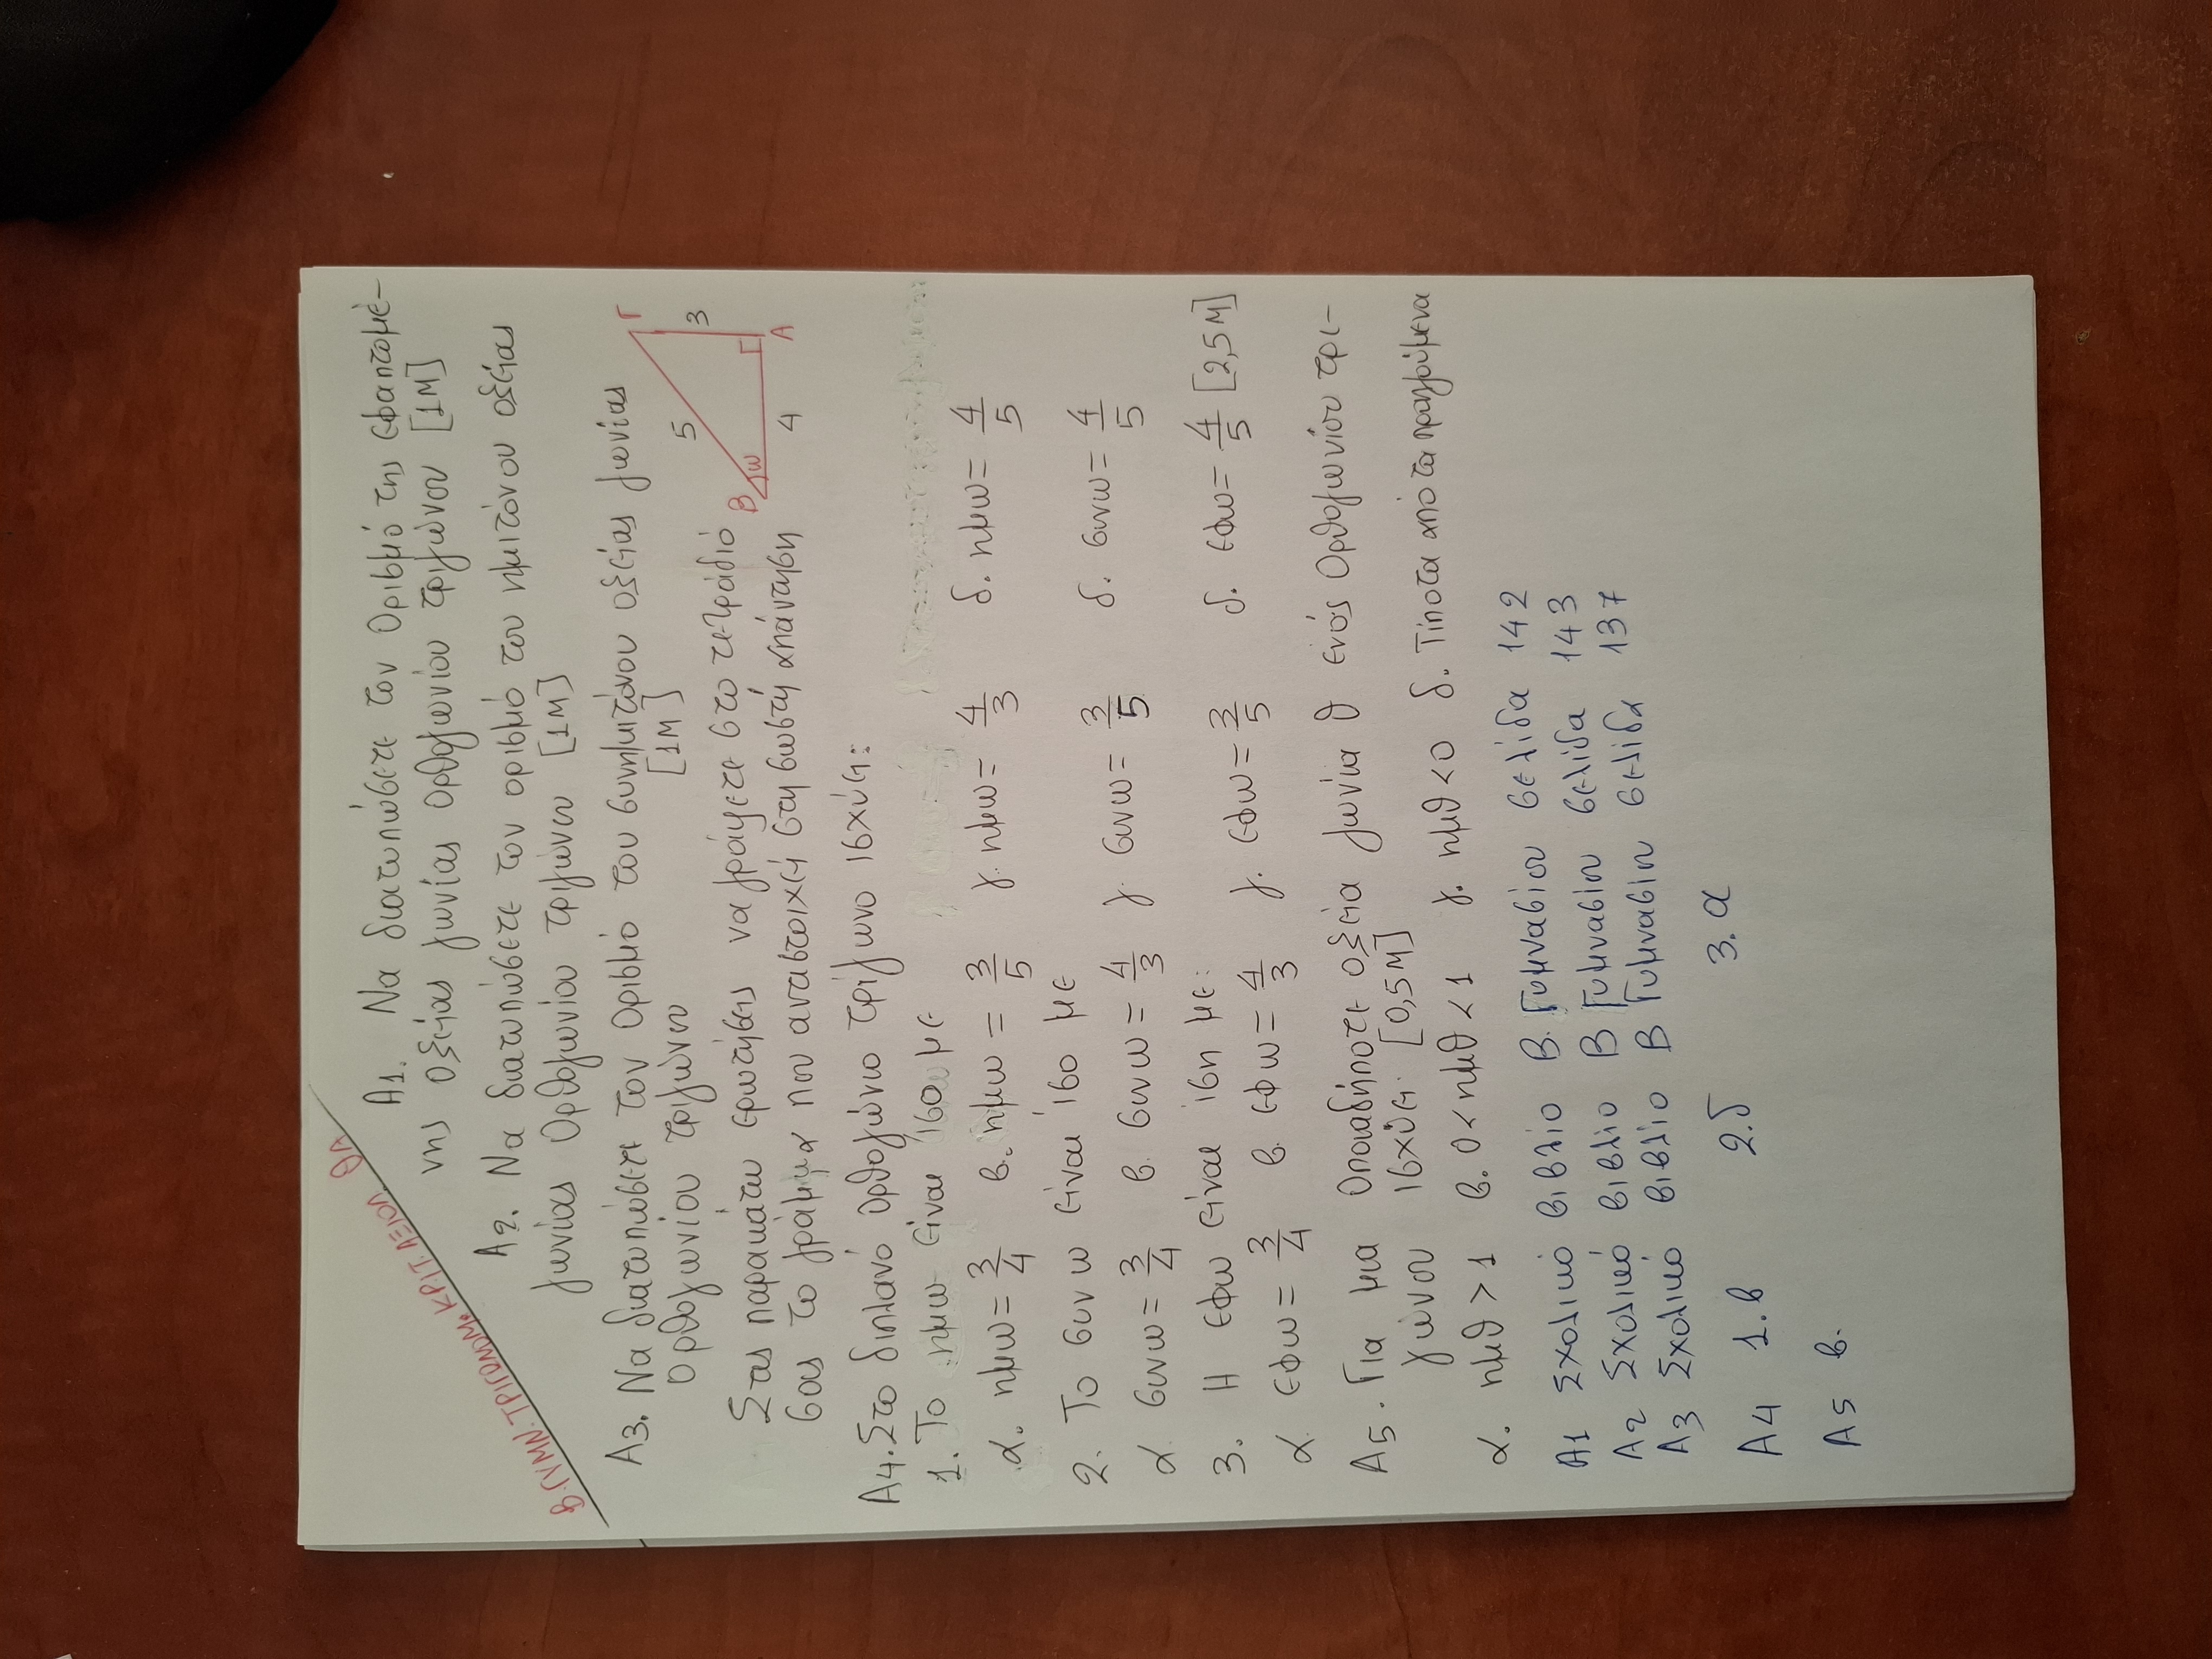 Β. ΓΥΜΝ. ΤΡΙΓΩΝΟΜ. ΚΡΙΤ. ΑΞΙΟΛ. ΘΑ
Α1. Να διατυπώσετε τον Ορισμό της εφαπτομέ-
νης οξείας γωνίας ορθογωνίου τριγώνου [1Μ]
Α2. Να διατυπώσετε τον ορισμό του ημιτόνου οξείας
γωνίας Ορθογωνίου τριγώνου [1Μ]
Α3. Να διατυπώσετε τον Ορισμό του συνημιτόνου οξείας γωνίας
Ορθογωνίου τριγώνου [1Μ]
Στας παρακάτω ερωτήσεις να γράψετε στο τετράδιό
σας το γράμμα που αντιστοιχεί στη σωστή απάντηση
Β ω 5 Γ 3 Α 4
Α4. Στο διπλανό ορθογώνιο τρίγωνο ισχύει:
1. Το ημω είναι ίσο με
α. ημω = 3/4 β. ημω = 3/5 γ. ημω = 4/3 δ. ημω = 4/5
2. Το συν ω είναι ίσο με
α συνω = 3/4 β. συνω = 4/3 γ. συνω = 3/5 δ. συνω = 4/5
3. Η εφω είναι ίση με:
α εφω = 3/4 β. εφω = 4/3 γ. εφω = 3/5 δ. εφω = 4/5 [2,5Μ]
Α5. Για μια Οποιαδήποτε οξεία γωνία θ ενός Ορθογωνίου τρι-
γώνου ισχύει: [0,5Μ]
α. ημθ > 1 β. 0 < ημθ < 1 γ. ημθ < 0 δ. Τίποτα από τα προηγούμενα
Α1 Σχολικό βιβλίο Β. Γυμνασίου σελίδα 142
Α2 Σχολικό βιβλίο Β Γυμνασίου σελίδα 143
Α3 Σχολικό βιβλίο Β Γυμνασίου σελίδα 137
Α4 1. β 2. δ 3. α
Α5 β.